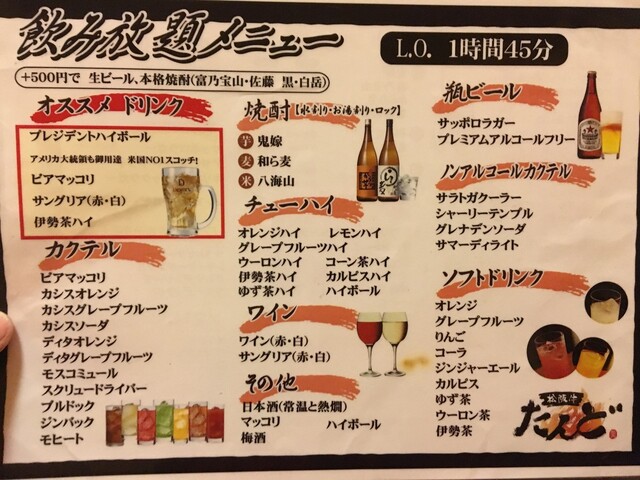 飲み放題メニュー
L.O. 1時間45分
+500円で 生ビール、本格焼酎(富乃宝山・佐藤 黒・白岳)
オススメ ドリンク
プレジデントハイボール
アメリカ大統領も御用達 米国NO1スコッチ!
ビアマッコリ
サングリア(赤・白)
伊勢茶ハイ
カクテル
ビアマッコリ
カシスオレンジ
カシスグレープフルーツ
カシスソーダ
ディタオレンジ
ディタグレープフルーツ
モスコミュール
スクリュードライバー
ブルドック
ジンバック
モヒート
焼酎【水割り・お湯割り・ロック】
芋 鬼嫁
麦 和ら麦
米 八海山
チューハイ
オレンジハイ レモンハイ
グレープフルーツハイ
ウーロンハイ コーン茶ハイ
伊勢茶ハイ カルピスハイ
ゆず茶ハイ ハイボール
ワイン
ワイン(赤・白)
サングリア(赤・白)
その他
日本酒(常温と熱燗)
マッコリ ハイボール
梅酒
瓶ビール
サッポロラガー
プレミアムアルコールフリー
ノンアルコールカクテル
サラトガクーラー
シャーリーテンプル
グレナデンソーダ
サマーディライト
ソフトドリンク
オレンジ
グレープフルーツ
りんご
コーラ
ジンジャーエール
カルピス
ゆず茶
ウーロン茶
伊勢茶
松阪牛
たんど